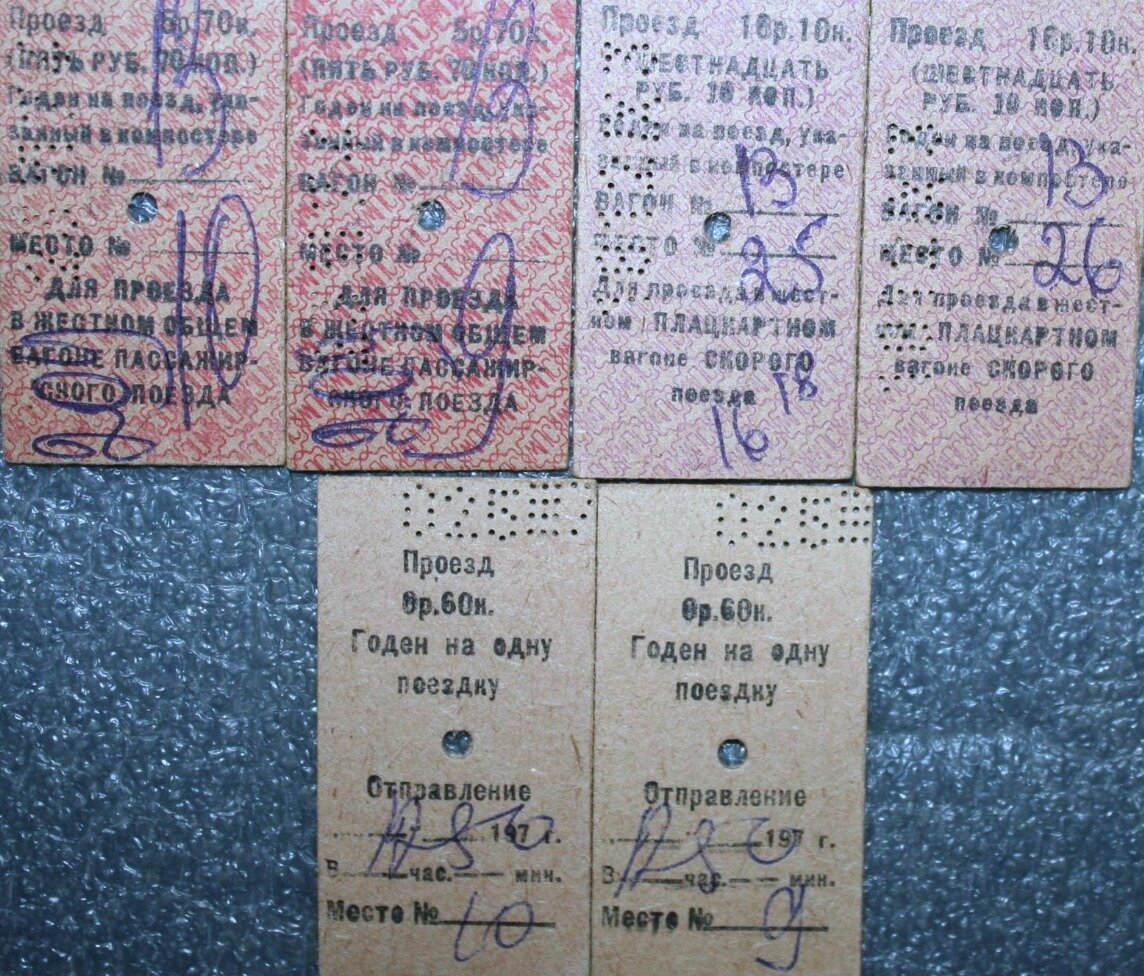 Проезд 5р.70к.
(ПЯТЬ РУБ. 70 КОП.)
Годен на поезд, ука-
занный в компостере
ВАГОН № 13
МЕСТО № 10
ДЛЯ ПРОЕЗДА
В ЖЕСТНОМ ОБЩЕМ
ВАГОНЕ ПАССАЖИР-
СКОГО ПОЕЗДА
Проезд 5р.70к.
(ПЯТЬ РУБ. 70 КОП.)
Годен на поезд, ука-
занный в компостере
ВАГОН № 13
МЕСТО № 9
ДЛЯ ПРОЕЗДА
В ЖЕСТНОМ ОБЩЕМ
ВАГОНЕ ПАССАЖИР-
СКОГО ПОЕЗДА
Проезд 16р.10к.
(ШЕСТНАДЦАТЬ
РУБ. 10 КОП.)
Годен на поезд, ука-
занный в компостере
ВАГОН № 13
МЕСТО № 25
Для проезда в жест-
ном ПЛАЦКАРТНОМ
вагоне СКОРОГО
поезда
16 18
Проезд 16р.10к.
(ШЕСТНАДЦАТЬ
РУБ. 10 КОП.)
Годен на поезд, ука-
занный в компостере
ВАГОН № 13
МЕСТО № 26
Для проезда в жест-
ном ПЛАЦКАРТНОМ
вагоне СКОРОГО
поезда
Проезд
0р.60к.
Годен на одну
поездку
Отправление
197 г.
В час. мин.
Место № 10
Проезд
0р.60к.
Годен на одну
поездку
Отправление
197 г.
В час. мин.
Место № 9